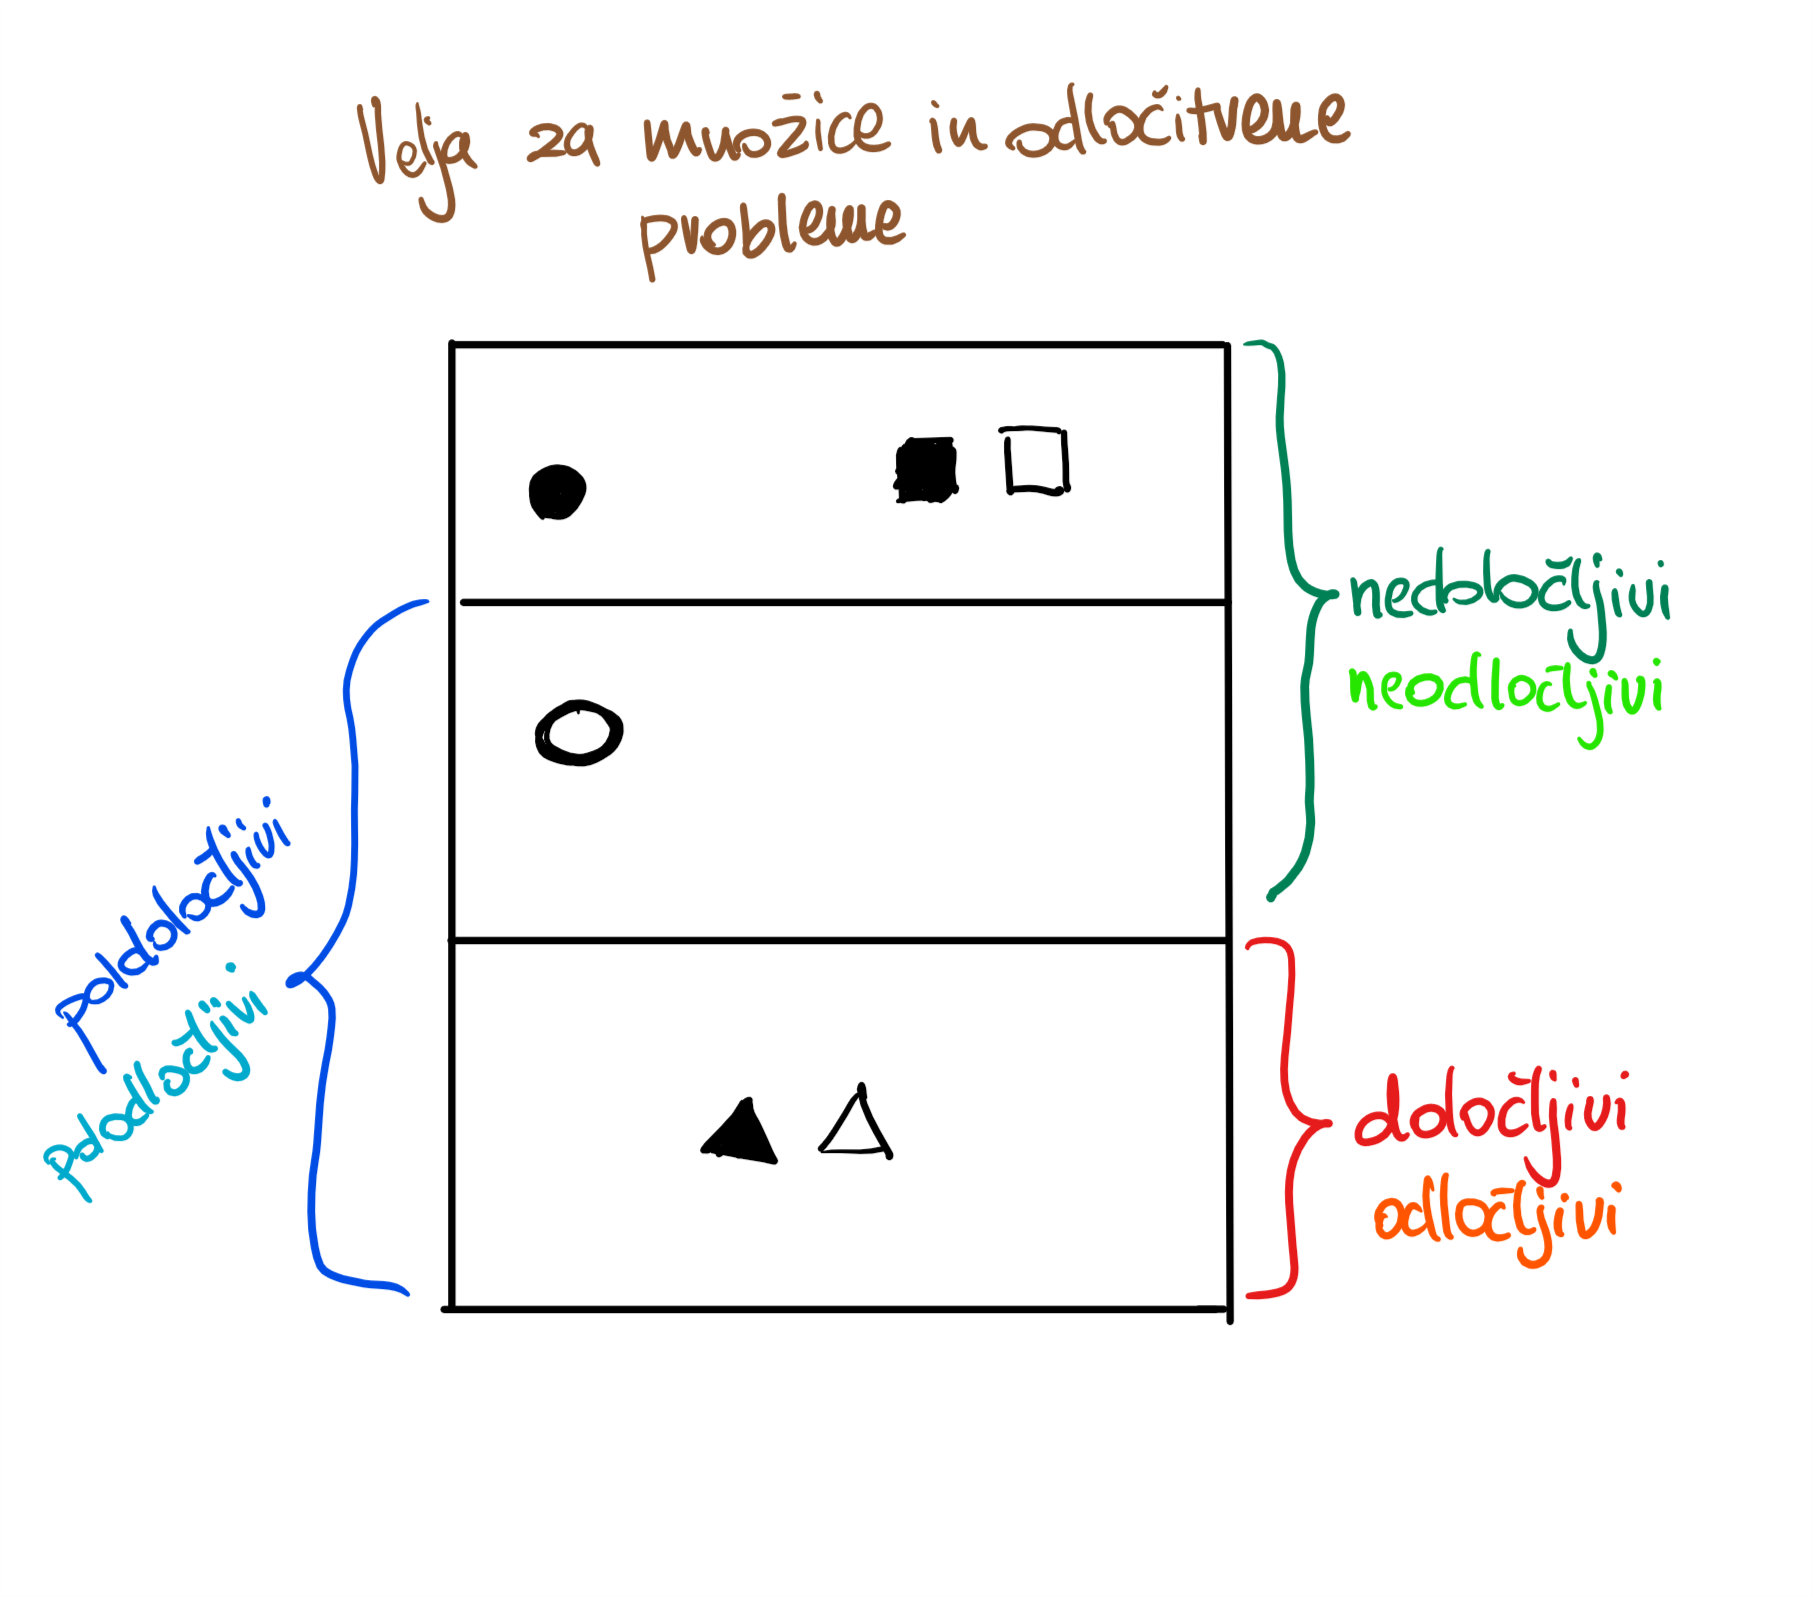 Velja za množice in odločitvene
probleme
nedoločljivi
neodločljivi
poldoločljivi
polodločljivi
določljivi
odločljivi